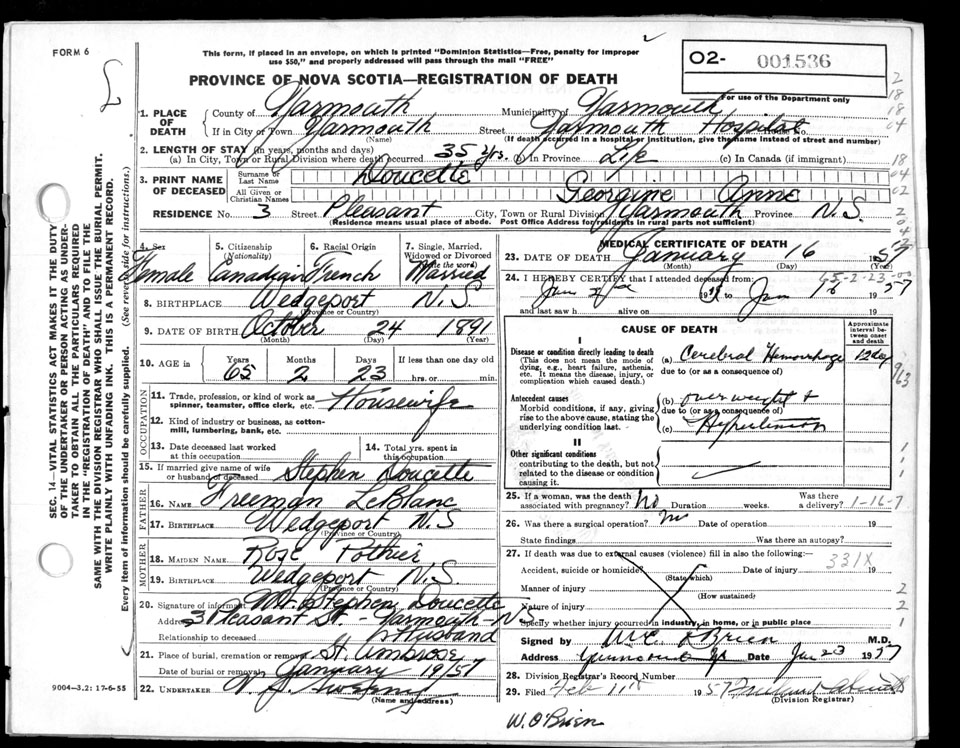 FORM 6
This form, if placed in an envelope, on which is printed "Dominion Statistics—Free, penalty for improper
use $50," and properly addressed will pass through the mail "FREE"
PROVINCE OF NOVA SCOTIA—REGISTRATION OF DEATH
O2- 001536
For use of the Department only
1. PLACE OF DEATH
County of Yarmouth Municipality of Yarmouth
If in City or Town Yarmouth Street Yarmouth Hospital House No.
(Name) (If death occurred in a hospital or institution, give the name instead of street and number)
2. LENGTH OF STAY (in years, months and days)
(a) In City, Town or Rural Division where death occurred 35 yrs. (b) In Province Life (c) In Canada (if immigrant)
3. PRINT NAME OF DECEASED
Surname or Last Name Doucette
All Given or Christian Names Georgine Anne
RESIDENCE No. 3 Street Pleasant City, Town or Rural Division Yarmouth Province N.S.
(Residence means usual place of abode. Post Office Address for residents in rural parts not sufficient)
4. Sex 5. Citizenship (Nationality) 6. Racial Origin 7. Single, Married, Widowed or Divorced (Write the word)
Female Canadian French Married
8. BIRTHPLACE Wedgeport N.S.
(Province or Country)
9. DATE OF BIRTH October 24 1891
(Month) (Day) (Year)
10. AGE in Years Months Days If less than one day old
65 2 23 hrs. or min.
OCCUPATION
11. Trade, profession, or kind of work as spinner, teamster, office clerk, etc. Housewife
12. Kind of industry or business, as cotton-mill, lumbering, bank, etc.
13. Date deceased last worked at this occupation
14. Total yrs. spent in this occupation
15. If married give name of wife or husband of deceased Stephen Doucette
FATHER
16. NAME Freeman LeBlanc
17. BIRTHPLACE Wedgeport N.S
(Province or Country)
MOTHER
18. MAIDEN NAME Rose Pothier
19. BIRTHPLACE Wedgeport N.S.
(Province or Country)
20. Signature of informant Mr. Stephen Doucette
Address 3 Pleasant St - Yarmouth - N.S
Relationship to deceased Husband
21. Place of burial, cremation or removal St. Ambrose
Date of burial or removal January 19/57
22. UNDERTAKER
(Name and address)
9004—3.2: 17-6-55
SEC. 14—VITAL STATISTICS ACT MAKES IT THE DUTY
OF THE UNDERTAKER OR PERSON ACTING AS UNDER-
TAKER TO OBTAIN ALL THE PARTICULARS REQUIRED
IN THE "REGISTRATION OF DEATH" AND TO FILE THE
SAME WITH THE DIVISION REGISTRAR WHO SHALL ISSUE THE BURIAL PERMIT.
WRITE PLAINLY WITH UNFADING INK. THIS IS A PERMANENT RECORD.
Every item of information should be carefully supplied. (See reverse side for instructions.)
MEDICAL CERTIFICATE OF DEATH
23. DATE OF DEATH January 16 1957
(Month) (Day) (Year)
24. I HEREBY CERTIFY that I attended deceased from:
Jan to Jan 16 1957
and last saw h alive on 19
CAUSE OF DEATH
Approximate interval between onset and death
I
Disease or condition directly leading to death
(This does not mean the mode of dying, e.g., heart failure, asthenia, etc. It means the disease, injury, or complication which caused death.)
(a) Cerebral Hemorrhage 12 day
due to (or as a consequence of)
Antecedent causes
Morbid conditions, if any, giving rise to the above cause, stating the underlying condition last.
(b) overweight +
due to (or as a consequence of)
(c) Hypertension
II
Other significant conditions
contributing to the death, but not related to the disease or condition causing it.
25. If a woman, was the death associated with pregnancy? No Duration weeks. Was there a delivery? 1-16-7
26. Was there a surgical operation? No Date of operation 19
State findings Was there an autopsy?
27. If death was due to external causes (violence) fill in also the following:—
331X
Accident, suicide or homicide? Date of injury 19
(State which)
Manner of injury
(How sustained)
Nature of injury
Specify whether injury occurred in industry, in home, or in public place
Signed by O'Brien M.D.
Address Date Jan 23 1957
28. Division Registrar's Record Number
29. Filed Feb 11 1957
(Division Registrar)
W. O'Brien